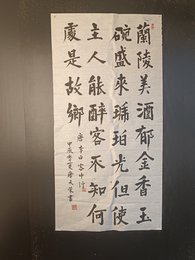 蘭陵美酒郁金香玉
碗盛來琥珀光但使
主人能醉客不知何
處是故鄉
唐李白客中作
甲辰 書